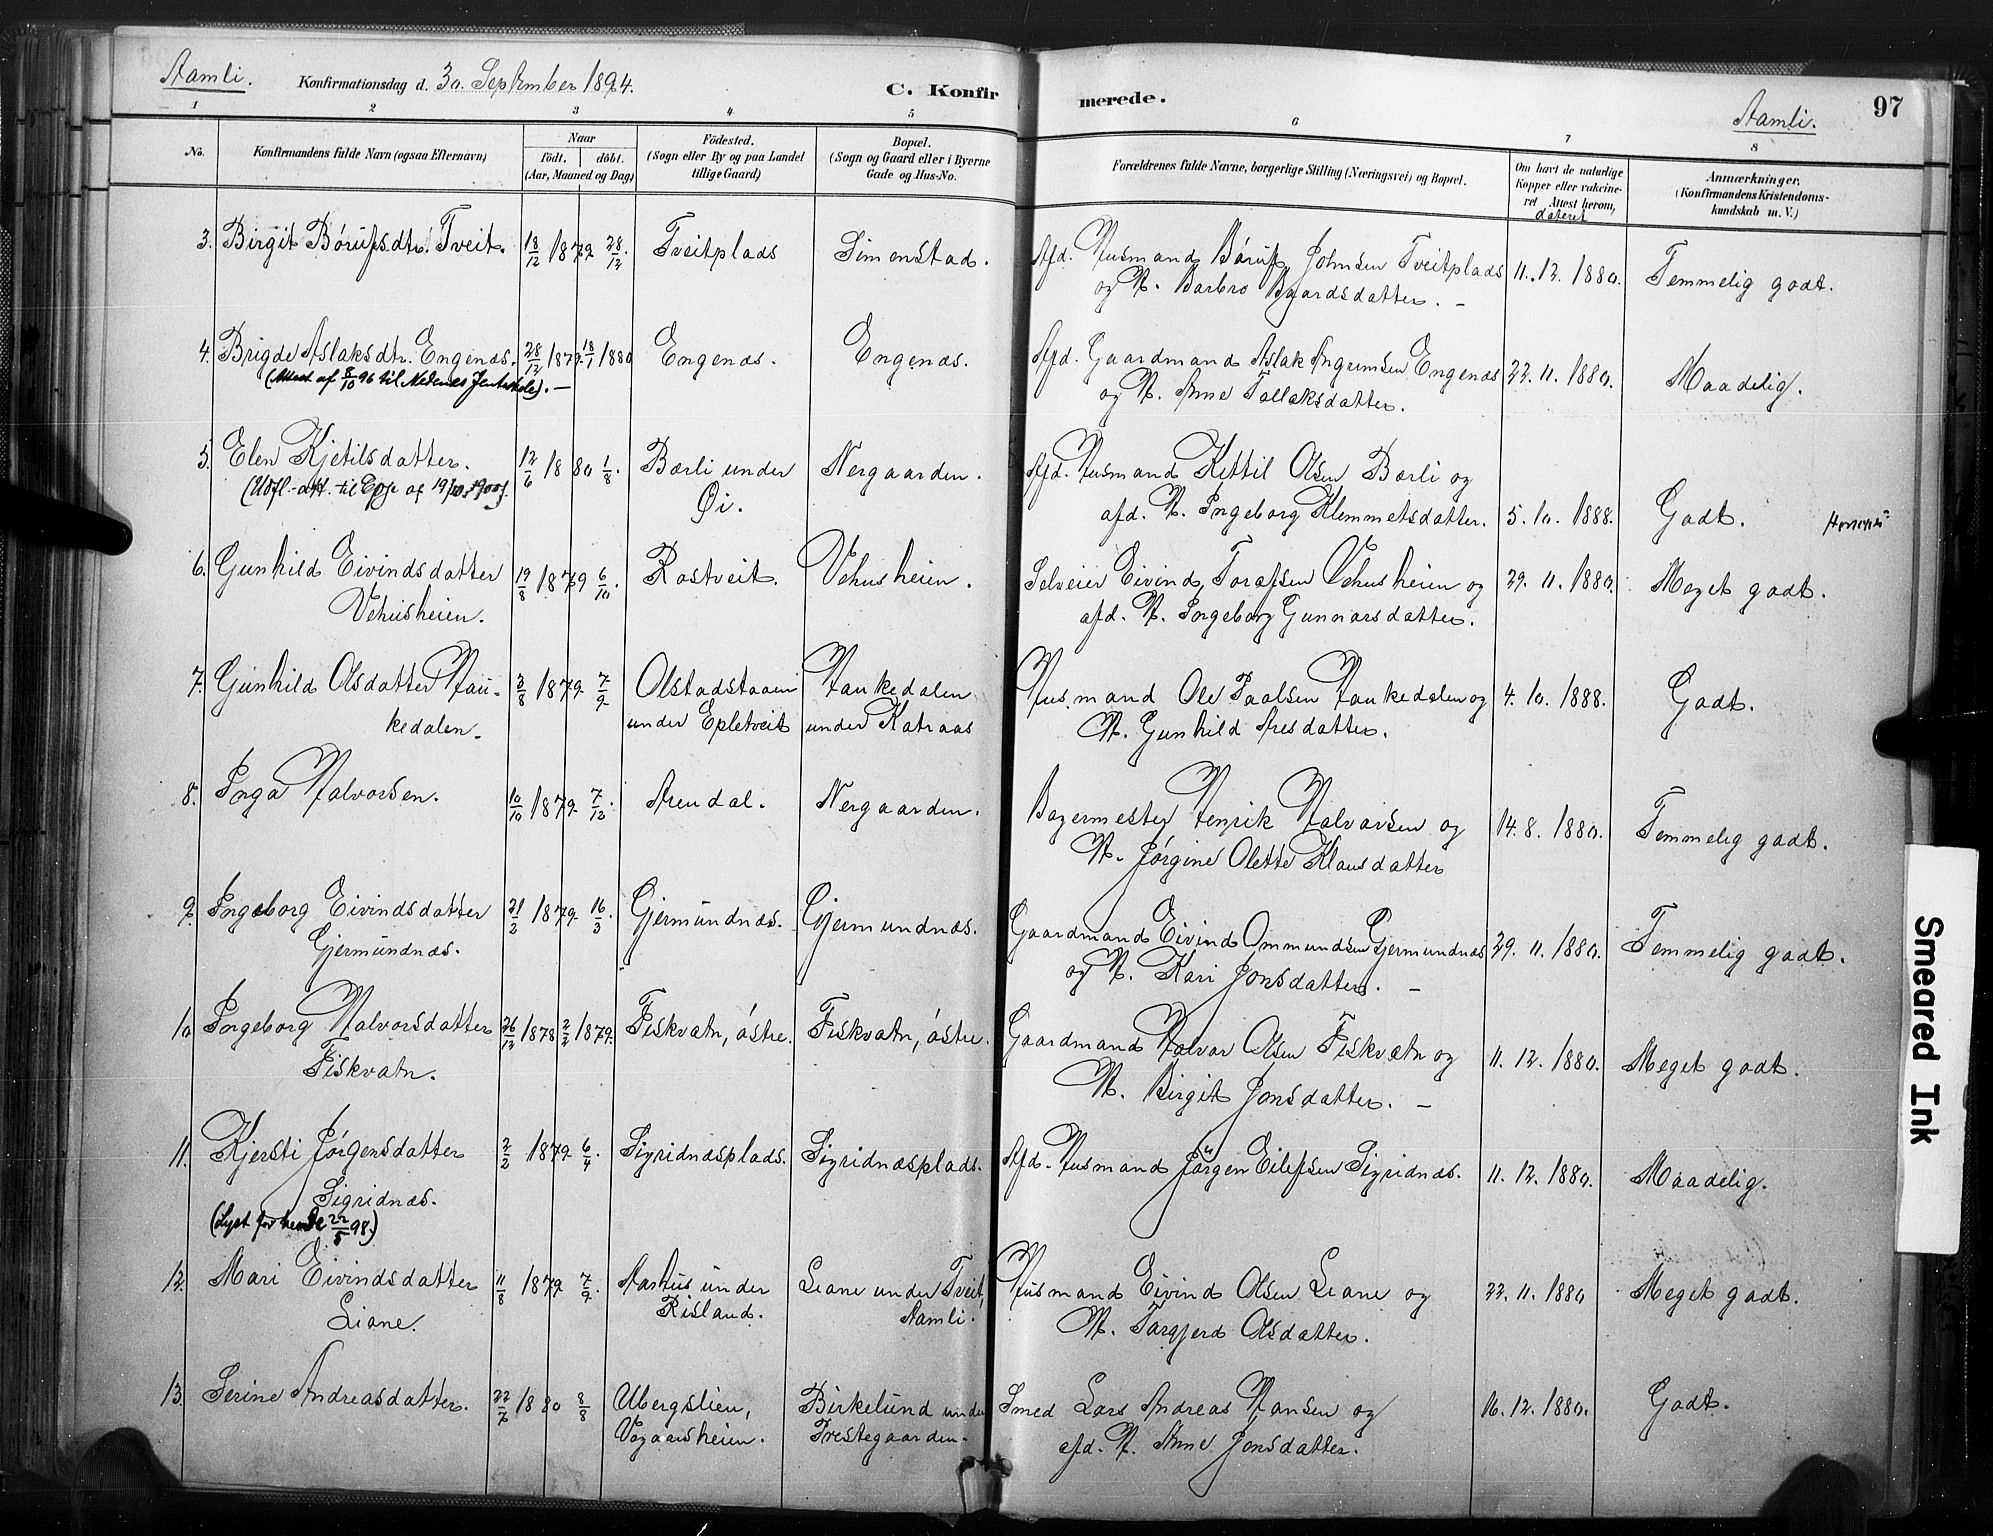 Aamli. Konfirmationsdag d. 30. September 1894. C. Konfirmerede. Aamli. 97
1 2 3 4 5 6 7 8
No. Konfirmandens fulde Navn (ogsaa Efternavn) Naar født. døbt. (Aar, Maaned og Dag) Fødested. (Sogn eller By og paa Landet tillige Gaard) Bopæl. (Sogn og Gaard eller i Byerne Gade og Hus-No. Forældrenes fulde Navne, borgerlige Stilling (Næringsvei) og Bopæl. Om havt de naturlige Kopper eller vakcineret Attest herom, dateret Anmærkninger. (Konfirmandens Kristendomskundskab m. V.)
3. Birgit Børufsdtr. Tveit. 18/12 1879 28/12. Tveitplads Simenstad. Afd. Husmand Børuf Johnsen Tveitplads 11. 12. 1880. Temmelig godt.
og H. Barbro Baardsdatter. –
4. Brigde Aslaksdtr. Engenæs. 28/12 1879 18/1 1880 Engenæs. Engenæs. Afd. Gaardmand Aslak Engenæs 22. 11. 1880. Maadelig.
(Attest af 8/10 96 til Nedenes Jenteskole). – og H. Anne Tallaksdatter.
5. Elen Kjetilsdatter. 12/6 1880 1/8. Bærli under Nergaarden. Afd. Husmand Kittil Olsen Bærli og
(Udfl.-att. til af 19/10 1900). Øi. afd. H. Ingeborg Klemmetsdatter. 5. 10. 1888. Godt.
6. Gunhild Eivindsdatter 19/8 1879 6/10. Rostveit. Vehusheien. Selveier Eivind Torafsen Vehusheien og 29. 11. 1880. Meget godt.
Vehusheien. afd. H. Ingeborg Gunnarsdatter.
7. Gunhild Olsdatter Hau- 3/8 1879. 7/9 Olstadstaaen Haukedalen Husmand Ole Paalsen Haukedalen og 4. 10. 1888. Godt.
kedalen. under Epletveit under Katraas H. Gunhild Aresdatter.
8. Inga Halvorsen. 10/10 1879. 7/12. Arendal. Nergaarden. Bagermester Henrik Halvorsen og 14. 8. 1880. Temmelig godt.
H. Jørgine Olette Klausdatter
9. Ingeborg Eivindsdatter 21/2 1879. 16/3. Gjermundnæs. Gjermundnæs. Gaardmand Eivind Ommundsen Gjermundnæs 29. 11. 1880. Temmelig godt.
Gjermundnæs. og H. Kari Jonsdatter. –
10 Ingeborg Halvorsdatter 26/12 1878 2/2 1879. Fiskvatn, østre. Fiskvatn, østre. Gaardmand Halvor Olsen Fiskvatn og 11. 12. 1880. Meget godt.
Fiskvatn. H. Birgit Jonsdatter. –
11. Kjersti Jørgensdatter 2/2 1879 6/4. Sigridnæsplads. Sigridnæsplads. Afd. Husmand Jørgen Eilefsen Sigridnæs. 11. 12. 1880. Maadelig.
Sigridnæs.
(Lyst for hende 22/5 98.)
12. Mari Eivindsdatter 11/8 1879 7/9. Aashus under Liane under Tveit, Husmand Eivind Olsen Liane og 22. 11. 1880 Meget godt.
Liane. Risland. Aamli. H. Targjerd Olsdatter.
13. Serine Andreasdatter. 22/7 1880 8/8 Ubergslien, Birkelund under Smed Lars Andreas Hansen og 16. 12. 1880. Godt.
Vogaarsheien. Prestegaarden. afd. H. Anne Jonsdatter.
Smeared Ink